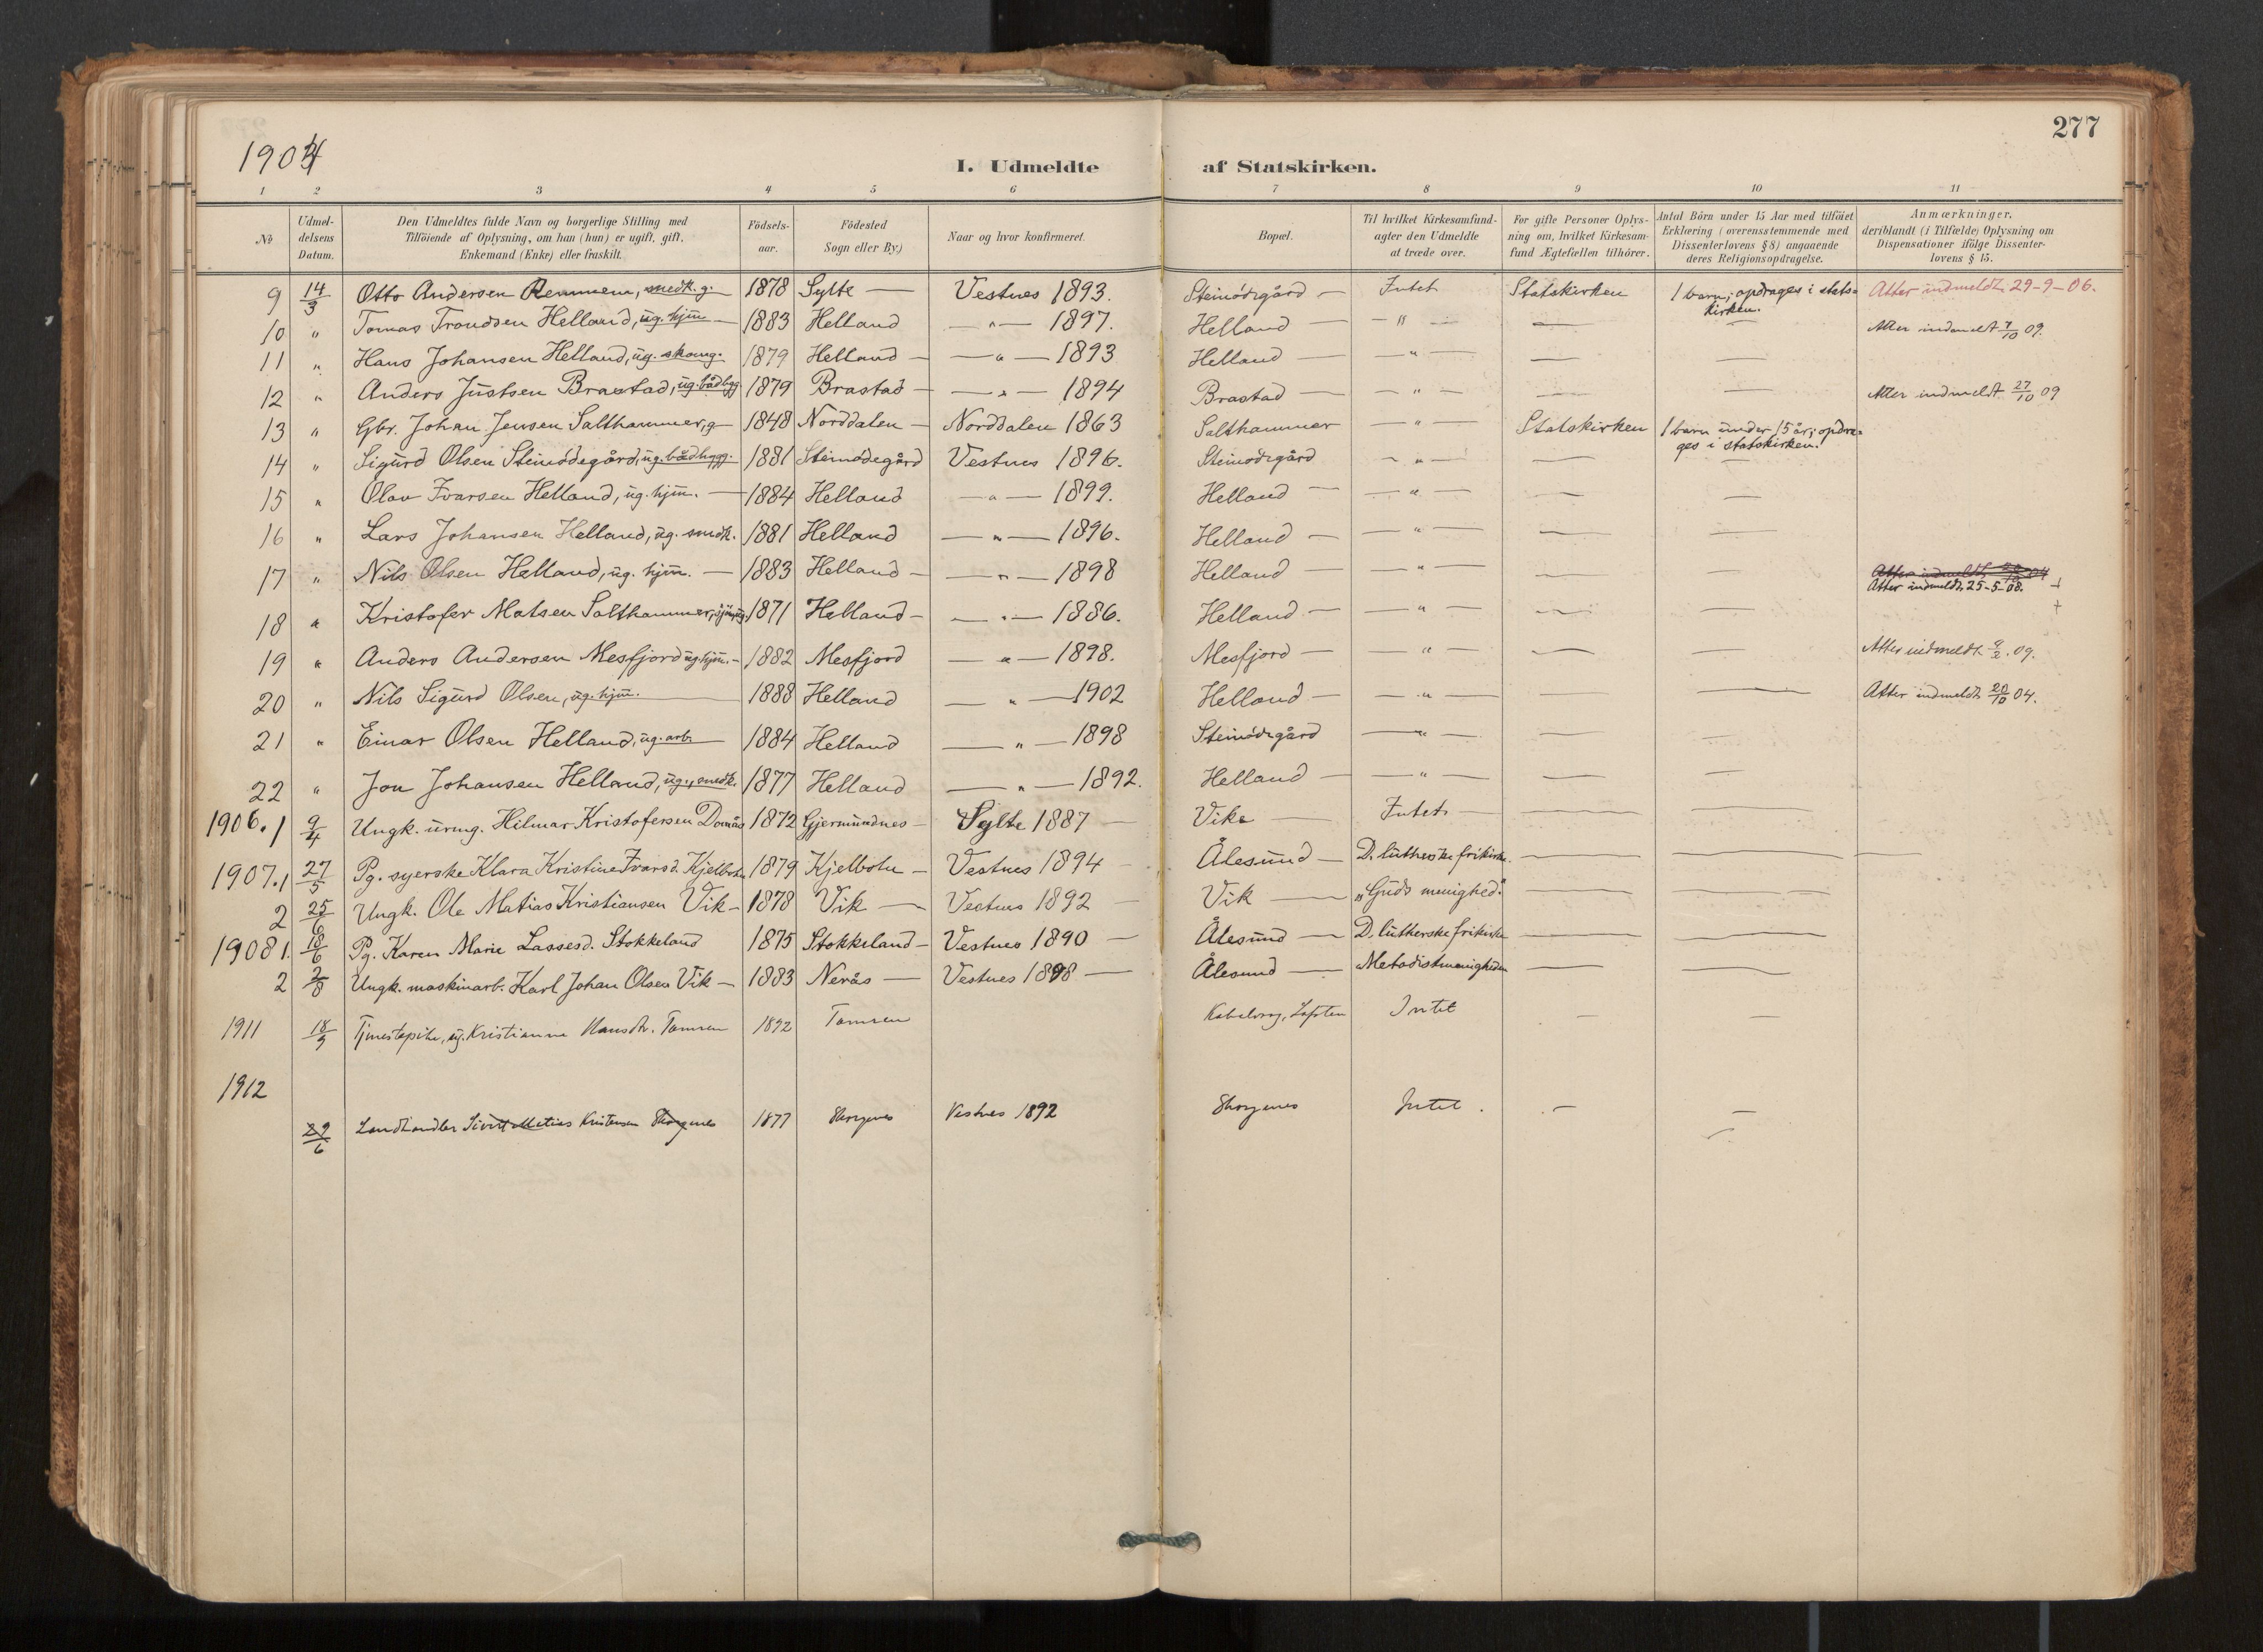 277
1904
I. Udmeldte af Statskirken.
1 2 3 4 5 6 7 8 9 10 11
№ Udmel-delsens Datum. Den Udmeldtes fulde Navn og borgerlige Stilling med Tilföiende af Oplysning, om han (hun) er ugift, gift, Enkemand (Enke) eller fraskilt. Födsels-aar. Födested Sogn eller By.) Naar og hvor konfirmeret. Bopæl. Til hvilket Kirkesamfund-agter den Udmeldte at træde over. For gifte Personer Oplys-ning om, hvilket Kirkesam-fund Ægtefællen tilhörer. Antal Börn under 15 Aar med tilföiet Erklæring (overensstemmende med Dissenterlovens § 8) angaaende deres Religionsopdragelse. Anmærkninger, deriblandt (i Tilfælde) Oplysning om Dispensationer ifölge Dissenter-lovens § 15.
9 14/3 Otto Andersen Remmem, snedk. g. 1878 Sylte — Vestnes 1893. Steinödegård — Intet Statskirken 1 barn; opdrages i stats=kirken. Atter indmeldt 29-9-06.
10 " Tomas Trondsen Helland, ug. hjm — 1883 Helland — " — 1897. Helland — — " — — — Atter indmeldt 7/10 09.
11 " Hans Johansen Helland, ug. skomg. 1879 Helland — — " — 1893 Helland — — " — — —
12 " Anders Justsen Brastad, ug. bådbygg 1879 Brastad — — " — 1894 Brastad — — " — — — Atter indmeldt 27/10 09
13 " Gbr. Johan Jensen Salthammer, g — 1848 Norddalen — Norddalen 1863 Salthammer — " — Statskirken 1 barn under 15 år; opdra=ges i statskirken.
14 " Sigurd Olsen Steinödegård, ug. bådbygg. 1881 Steinödegård Vestnes 1896. Steinödegård — " — — —
15 " Olav Ivarsen Helland, ug. hjm. — 1884 Helland — " — 1899. Helland — — " — — —
16 " Lars Johansen Helland, ug. snedk. 1881 Helland — " — 1896. Helland — — " — — —
17 " Nils Olsen Helland, ug. hjm. — 1883 Helland — — " — 1898 Helland — — " — — — Atter indmeldt 04 Atter indmeldt 25-5-08. +
18 " Kristofer Matsen Salthammer, ug. 1871 Helland — — " — 1886. Helland — — " — — — +
19 " Anders Andersen Mesfjord ug. hjm. — 1882 Mesfjord — " — 1898. Mesfjord — — " — — — Atter indmeldt 9/2. 09.
20 " Nils Sigurd Olsen, ug. hjm. — 1888 Helland — " — 1902 Helland — — " — — — Atter indmeldt 20/10 04.
21 " Einar Olsen Helland, ug. arb. 1884 Helland — " — 1898 Steinödegård — " — — —
22 " Jon Johansen Helland, ug., snedk. 1877 Helland — " — 1892. Helland — — " — — —
1906. 1 9/4 Ungk. urmg. Hilmar Kristofersen Dornås 1872 Gjermundnes — Sylte 1887 — Vike — Intet — — —
1907. 1 27/5 Pg. syerske Klara Kristine Ivarsd. Kjelbotn 1879 Kjelbotn — Vestnes 1894 — Ålesund — D. lutherske frikirke. — — —
2 25/6 Ungk. Ole Matias Kristiansen Vik — 1878 Vik — Vestnes 1892 — Vik — „Guds menighed". — —
1908 1. 18/6 Pg. Karen Marie Lassesd. Stokkeland 1875 Stokkeland — Vestnes 1890 — Ålesund — D. lutherske frikirke — —
2 2/8 Ungk. maskinarb. Karl Johan Olsen Vik — 1883 Nerås — Vestnes 1898 — Ålesund — Metodistmenigheden — —
1911 18/9 Tjenestepike, ug. Kristianne Hansdtr. Tomren 1892 Tomren Kabelvåg, Lofoten Intet — —
1912
29/6 Landhandler Sivert Matias Kristensen Skorgenes 1877 Skorgenes Vestnes 1892 Skorgenes Intet. — —